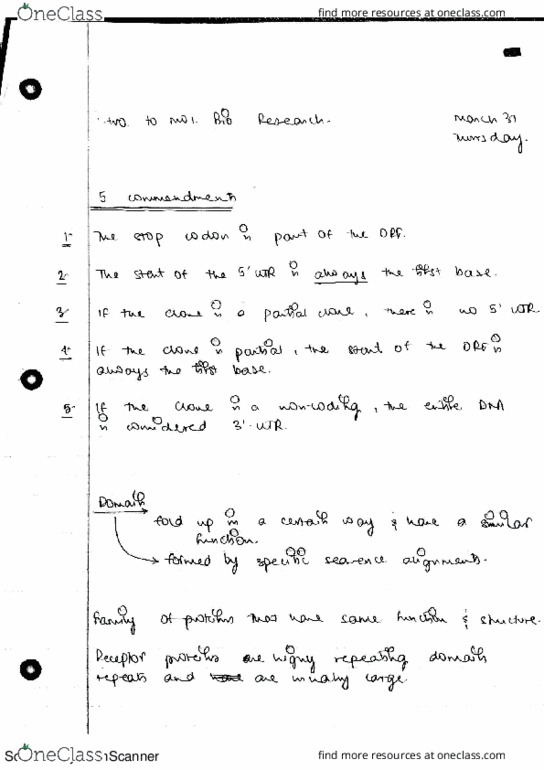 OneClass
find more resources at oneclass.com
to Mol. Bio Research.
March 31
Thursday.
5 commandments
1- The stop codon is part of the ORF.
2- The start of the 5' UTR is always the first base.
3- If the clone is a partial clone, there is no 5' UTR.
4- If the clone is partial, the start of the ORF is
always the first base.
5- If the clone is a non-coding, the entire DNA
is considered 3'-UTR.
Domain
fold up in a certain way & have a similar
function.
formed by specific sequence alignments.
Family of proteins that have same function & structure.
Receptor proteins are highly repeating domain
repeats and are usually large.
OneClass
Scanner
find more resources at oneclass.com